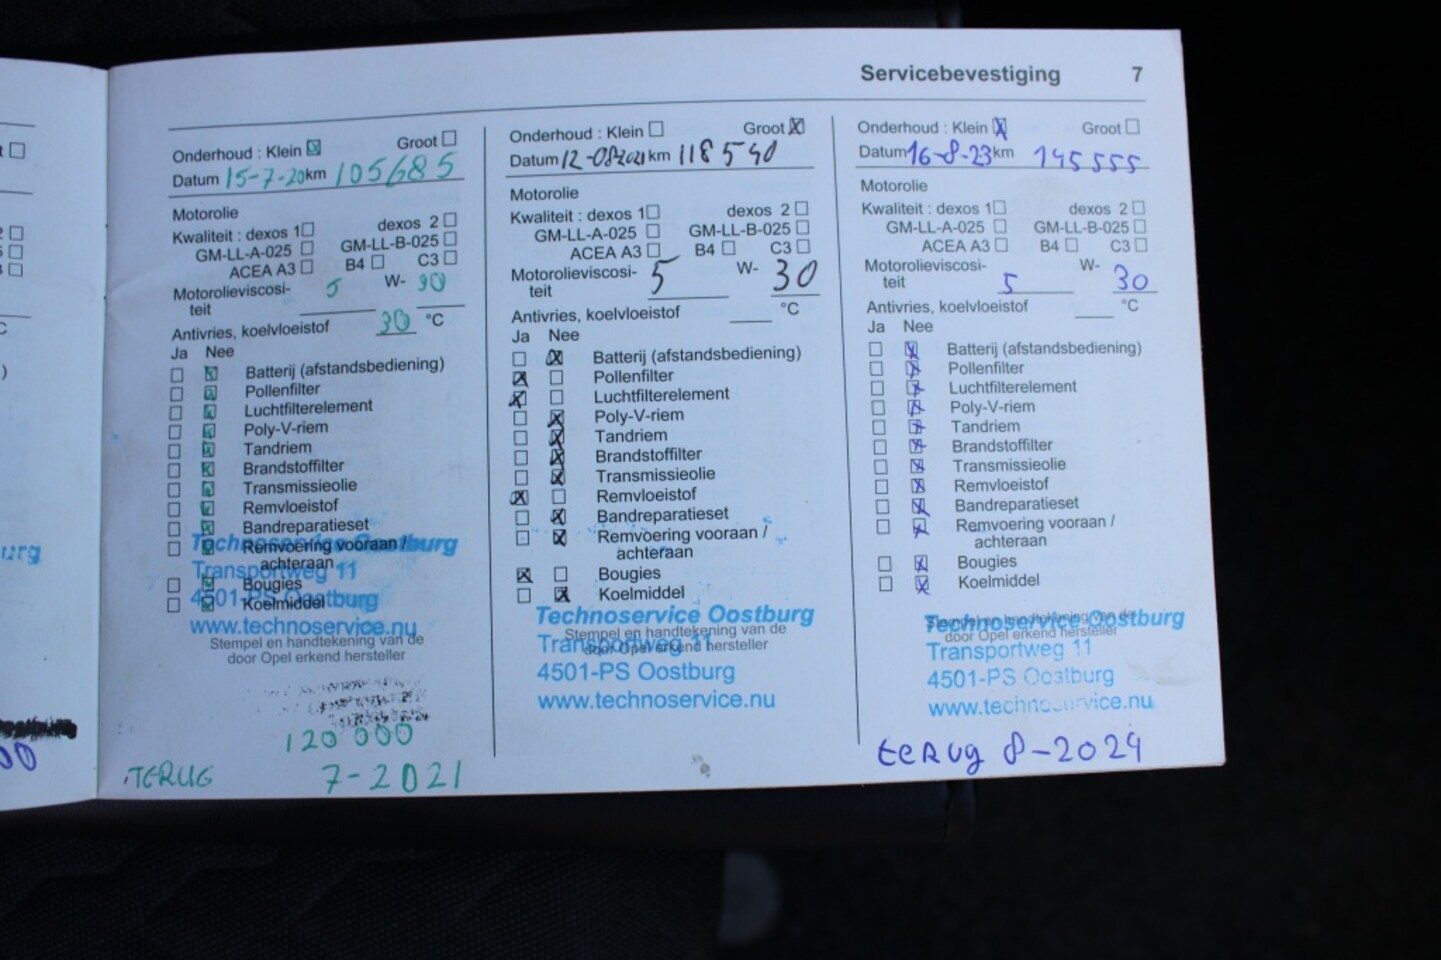 Servicebevestiging 7
Onderhoud : Klein ☒ Groot ☐
Datum 15-7-20 km 105685
Motorolie
Kwaliteit : dexos 1☐ dexos 2 ☐
GM-LL-A-025 ☐ GM-LL-B-025 ☐
ACEA A3 ☐ B4 ☐ C3 ☐
Motorolieviscosi-
teit 5 W- 30
Antivries, koelvloeistof 30 °C
Ja Nee
☐ ☒ Batterij (afstandsbediening)
☐ ☒ Pollenfilter
☐ ☒ Luchtfilterelement
☐ ☒ Poly-V-riem
☐ ☒ Tandriem
☐ ☒ Brandstoffilter
☐ ☒ Transmissieolie
☐ ☒ Remvloeistof
☐ ☒ Bandreparatieset
☐ ☒ Remvoering vooraan /
achteraan
☐ ☒ Bougies
☐ ☒ Koelmiddel
Technoservice Oostburg
Transportweg 11
4501-PS Oostburg
www.technoservice.nu
Stempel en handtekening van de
door Opel erkend hersteller
120 000
TERUG 7-2021
Onderhoud : Klein ☐ Groot ☒
Datum 12-08-2021 km 118540
Motorolie
Kwaliteit : dexos 1☐ dexos 2 ☐
GM-LL-A-025 ☐ GM-LL-B-025 ☐
ACEA A3 ☐ B4 ☐ C3 ☐
Motorolieviscosi-
teit 5 W- 30
Antivries, koelvloeistof °C
Ja Nee
☐ ☒ Batterij (afstandsbediening)
☒ ☐ Pollenfilter
☒ ☐ Luchtfilterelement
☐ ☒ Poly-V-riem
☐ ☒ Tandriem
☐ ☒ Brandstoffilter
☐ ☒ Transmissieolie
☒ ☐ Remvloeistof
☐ ☒ Bandreparatieset
☐ ☒ Remvoering vooraan /
achteraan
☒ ☐ Bougies
☐ ☒ Koelmiddel
Technoservice Oostburg
Stempel en handtekening van de
Transportweg 11
door Opel erkend hersteller
4501-PS Oostburg
www.technoservice.nu
Onderhoud : Klein ☒ Groot ☐
Datum 16-8-23 km 145555
Motorolie
Kwaliteit : dexos 1☐ dexos 2 ☐
GM-LL-A-025 ☐ GM-LL-B-025 ☐
ACEA A3 ☐ B4 ☐ C3 ☐
Motorolieviscosi-
teit 5 W- 30
Antivries, koelvloeistof °C
Ja Nee
☐ ☒ Batterij (afstandsbediening)
☐ ☒ Pollenfilter
☐ ☒ Luchtfilterelement
☐ ☒ Poly-V-riem
☐ ☒ Tandriem
☐ ☒ Brandstoffilter
☐ ☒ Transmissieolie
☐ ☒ Remvloeistof
☐ ☒ Bandreparatieset
☐ ☒ Remvoering vooraan /
achteraan
☐ ☒ Bougies
☐ ☒ Koelmiddel
Stempel en handtekening van de
Technoservice Oostburg
door Opel erkend hersteller
Transportweg 11
4501-PS Oostburg
www.technoservice.nu
terug 8-2024